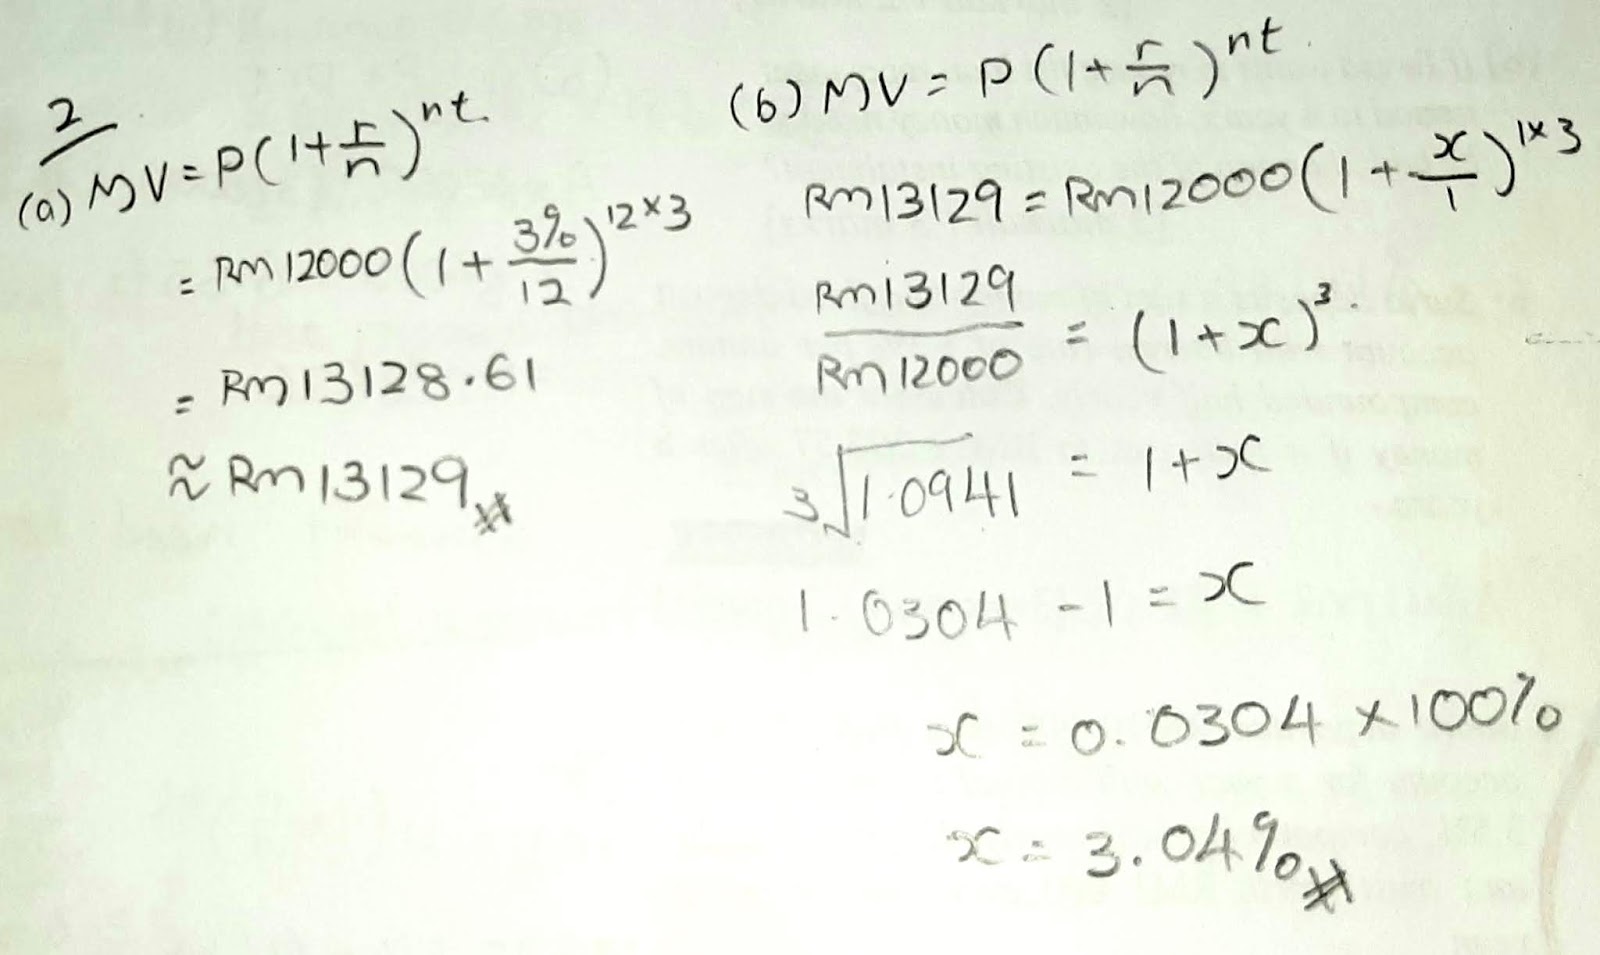 2
(a) MV = P(1+r/n)^nt.
= RM12000(1+3%/12)^12×3
= RM13128.61
≈ RM13129
(b) MV = P(1+r/n)^nt.
RM13129 = RM12000(1+x/1)^1×3
RM13129/RM12000 = (1+x)^3.
3√1.0941 = 1+x
1.0304 - 1 = x
x = 0.0304 × 100%
x = 3.04%